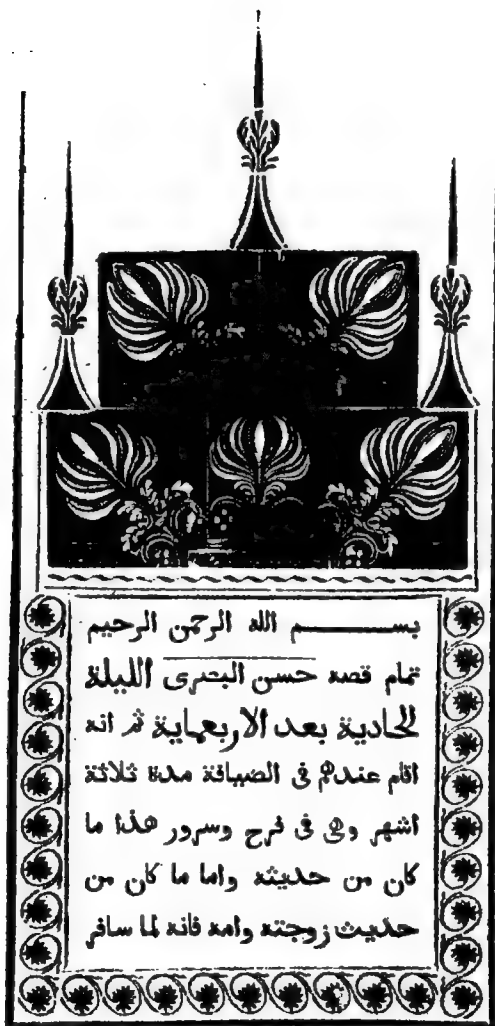 بســـــــم الله الرحمن الرحيم
تمام قصة حسن البصرى الليلة
الحادية بعد الاربعماية ثم انه
اقام عندهم فى الضيافة مدة ثلاثة
اشهر وهى فى فرح وسرور هذا ما
كان من حديثه واما ما كان من
حديث زوجته وامه فانه لما سافر